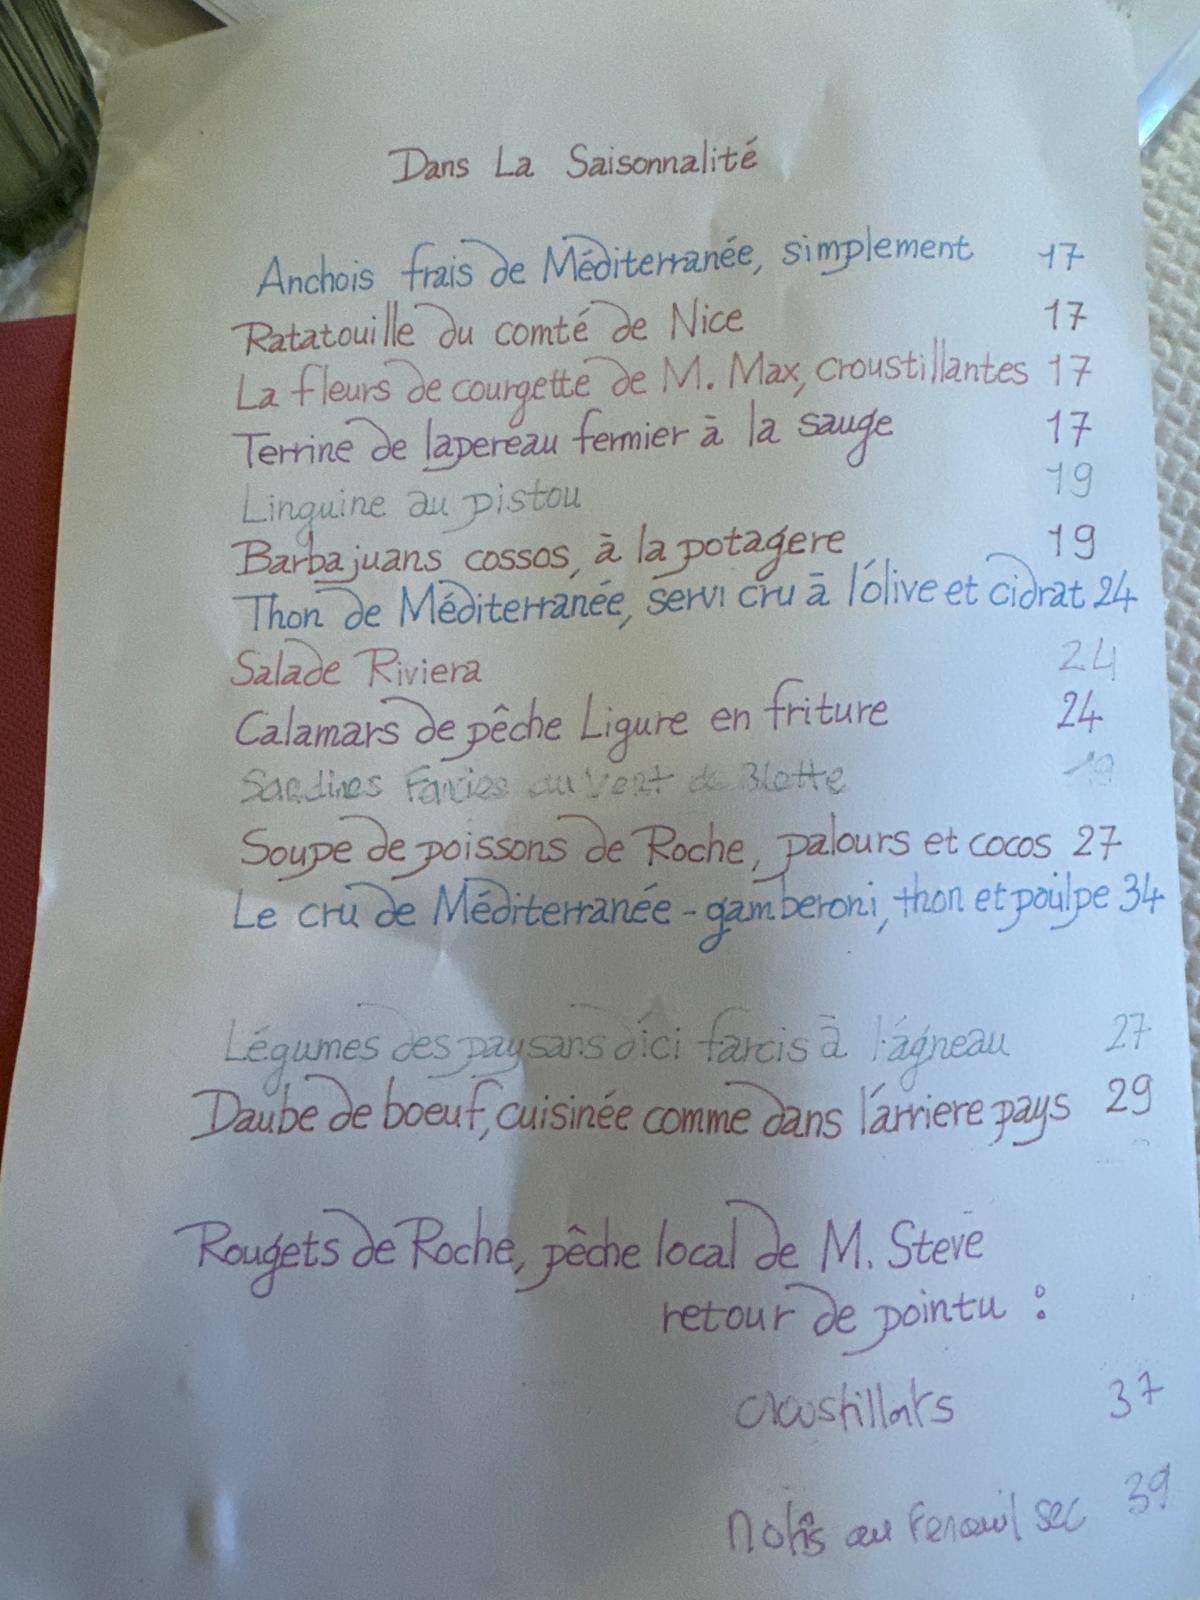 Dans La Saisonnalité
Anchois frais de Méditerranée, simplement 17
Ratatouille du comté de Nice 17
La fleurs de courgette de M. Max, croustillantes 17
Terrine de lapereau fermier à la sauge 17
Linguine au pistou 19
Barbajuans cossos, à la potagere 19
Thon de Méditerranée, servi cru à l'olive et cidrat 24
Salade Riviera 24
Calamars de pêche Ligure en friture 24
Sardines Farcies au Vert de Blette 19
Soupe de poissons de Roche, palours et cocos 27
Le cru de Méditerranée - gamberoni, thon et poulpe 34
Légumes des paysans d'ici farcis à l'agneau 27
Daube de boeuf, cuisinée comme dans l'arriere pays 29
Rougets de Roche, pêche local de M. Steve
retour de pointu :
croustillats 37
au Fenouil sec 39